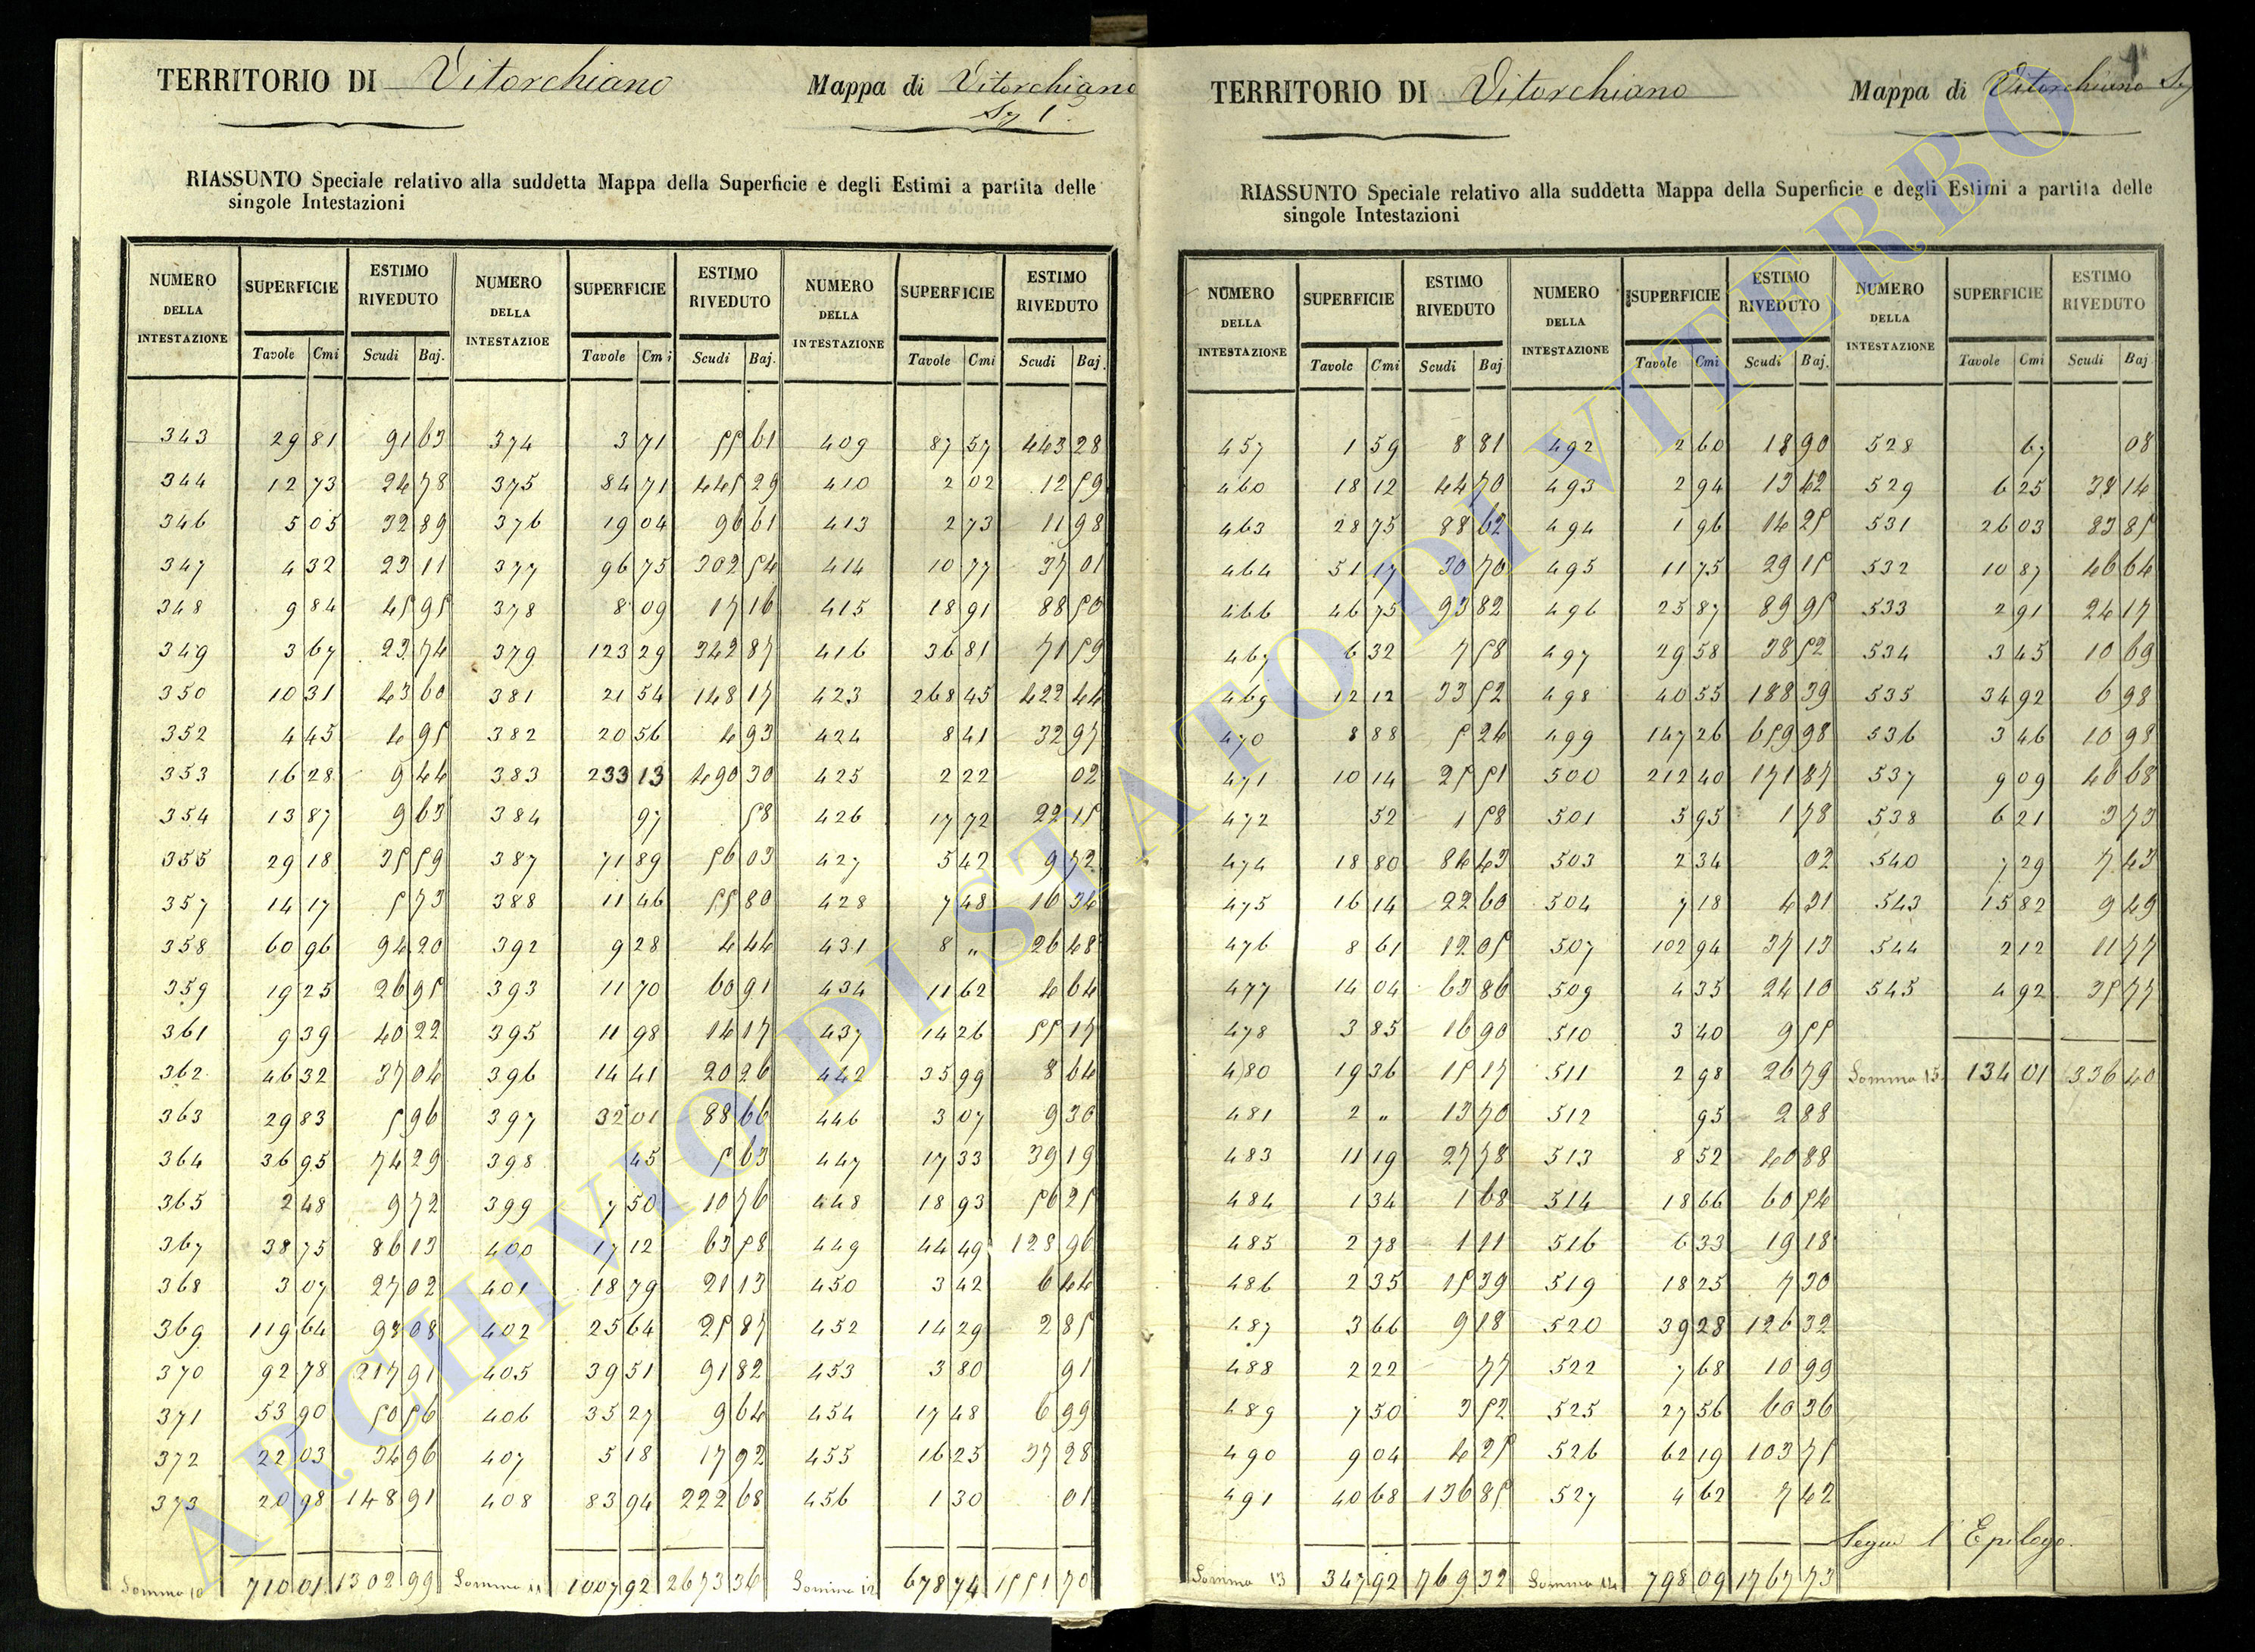 TERRITORIO DI Vitorchiano Mappa di Vitorchiano
Sez 1ª
RIASSUNTO Speciale relativo alla suddetta Mappa della Superficie e degli Estimi a partita delle
singole Intestazioni
NUMERO DELLA INTESTAZIONE SUPERFICIE ESTIMO RIVEDUTO NUMERO DELLA INTESTAZIOE SUPERFICIE ESTIMO RIVEDUTO NUMERO DELLA INTESTAZIONE SUPERFICIE ESTIMO RIVEDUTO
Tavole Cmi Scudi Baj. Tavole Cmi Scudi Baj. Tavole Cmi Scudi Baj.
343 29 81 91 63 374 3 71 55 61 409 87 57 443 28
344 12 73 24 78 375 84 71 445 29 410 2 02 12 59
346 5 05 32 89 376 19 04 96 61 413 2 73 11 98
347 4 32 23 11 377 96 75 302 54 414 10 77 37 01
348 9 84 45 95 378 8 09 17 16 415 18 91 88 50
349 3 67 23 74 379 123 29 342 87 416 36 81 71 59
350 10 31 43 60 381 21 54 148 17 423 268 45 422 44
352 4 45 4 95 382 20 56 4 93 424 8 41 32 97
353 16 28 9 44 383 233 13 490 30 425 2 22 02
354 13 87 9 63 384 97 58 426 17 72 22 15
355 29 18 35 59 387 71 89 56 03 427 5 42 9 72
357 14 17 5 73 388 11 46 55 80 428 7 48 16 34
358 60 96 94 20 392 9 28 4 44 431 8 " 26 48
359 19 25 26 95 393 11 70 60 91 434 11 62 4 64
361 9 39 40 22 395 11 98 14 17 437 14 26 55 17
362 46 32 37 04 396 14 41 20 26 442 35 99 8 64
363 29 83 5 96 397 32 01 88 66 446 3 07 9 30
364 36 95 74 29 398 45 5 63 447 17 33 39 19
365 2 48 9 72 399 7 50 10 76 448 18 93 56 25
367 38 75 86 13 400 17 12 63 58 449 44 49 128 96
368 3 07 27 02 401 18 79 21 13 450 3 42 6 44
369 119 64 93 08 402 25 64 25 87 452 14 29 2 85
370 92 78 217 91 405 39 51 91 82 453 3 80 91
371 53 90 50 56 406 35 27 9 64 454 17 48 6 99
372 22 03 34 96 407 5 18 17 92 455 16 25 37 28
373 20 98 148 91 408 83 94 222 68 456 1 30 01
Somma 10 710 01 1302 99 Somma 11 1007 92 2673 36 Somma 12 678 74 1551 70
TERRITORIO DI Vitorchiano Mappa di Vitorchiano
RIASSUNTO Speciale relativo alla suddetta Mappa della Superficie e degli Estimi a partita delle
singole Intestazioni
NUMERO DELLA INTESTAZIONE SUPERFICIE ESTIMO RIVEDUTO NUMERO DELLA INTESTAZIONE SUPERFICIE ESTIMO RIVEDUTO NUMERO DELLA INTESTAZIONE SUPERFICIE ESTIMO RIVEDUTO
Tavole Cmi Scudi Baj Tavole Cmi Scudi Baj. Tavole Cmi Scudi Baj
457 1 59 8 81 492 2 60 18 90 528 67 08
460 18 12 44 70 493 2 94 13 62 529 6 25 38 14
463 28 75 88 62 494 1 96 14 25 531 26 03 83 85
464 51 17 30 70 495 11 75 29 15 532 10 87 46 64
466 46 75 93 82 496 25 87 89 95 533 2 91 24 17
467 6 32 7 58 497 29 58 38 52 534 3 45 10 69
469 12 12 33 52 498 40 55 188 39 535 34 92 6 98
470 8 88 5 24 499 147 26 659 98 536 3 46 10 98
471 10 14 25 51 500 212 40 171 87 537 9 09 46 68
472 52 1 58 501 5 95 1 78 538 6 21 3 73
474 18 80 84 43 503 2 34 02 540 7 29 7 43
475 16 14 22 60 504 7 18 4 31 543 15 82 9 49
476 8 61 12 05 507 102 94 37 13 544 2 12 11 77
477 14 04 63 86 509 4 35 24 10 545 4 92 35 77
478 3 85 16 90 510 3 40 9 55
480 19 36 15 17 511 2 98 26 79 Somma 15 134 01 336 40
481 2 " 13 70 512 95 2 88
483 11 19 27 78 513 8 52 40 88
484 1 34 1 68 514 18 66 60 54
485 2 78 1 11 516 6 33 19 18
486 2 35 15 39 519 18 25 7 30
487 3 66 9 18 520 39 28 126 32
488 2 22 77 522 7 68 10 99
489 7 50 3 52 525 27 56 60 36
490 9 04 4 25 526 62 19 103 75
491 40 68 136 85 527 4 62 7 42
Segue l'Epilogo.
Somma 13 347 92 769 32 Somma 14 798 09 1767 73
ARCHIVIO DI STATO DI VITERBO